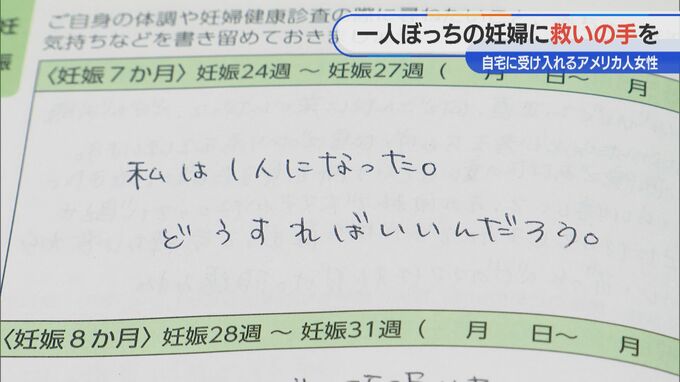 一人ぼっちの妊婦に救いの手を
自宅に受け入れるアメリカ人女性
妊
娠
ご自身の体調や妊婦健康診査の際に
気持ちなどを書き留めておき
〈妊娠7か月〉妊娠24週 ~ 妊娠27週 ( 月 日~ 月
私は1人になった。
どうすればいいんだろう。
〈妊娠8か月〉妊娠28週 ~ 妊娠31週 ( 月 日~ 月